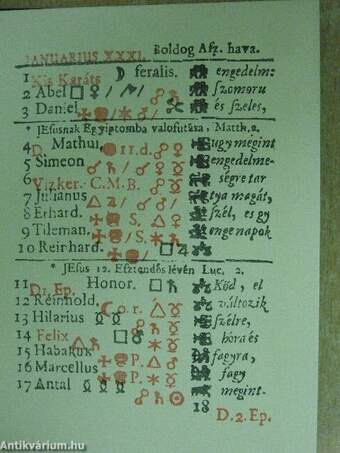 JANUARIUS XXXI. Boldog Asz. hava.
1 Kis Karáts ☽ feralis. engedelm:
2 Abel □ ♀ / ♂ / ☍ ♄ szomoru
3 Daniel és szeles,
* JEsusnak Egyiptomba valofutása, Matth. 2.
4 D. Mathu. 11. d. ☍ ♀ ugy megint
5 Simeon engedelme-
6 Vizker. C. M. B. ☍ ségre tar
7 Julianus tya magát,
8 Erhard. S. szél, es gy
9 Tileman. S. enge napok
10 Reinhard. □ ♃
* JEsus 12. Esztendős lévén Luc. 2.
11 D 1. Ep. Honor. □ ♄ Köd, el
12 Reinhold, változik
13 Hilarius szélre,
14 Felix hóra és
15 Habakuk P. fagyra,
16 Marcellus P. fagy
17 Antal megint.
18 D. 2. Ep.
Antikvárium.hu